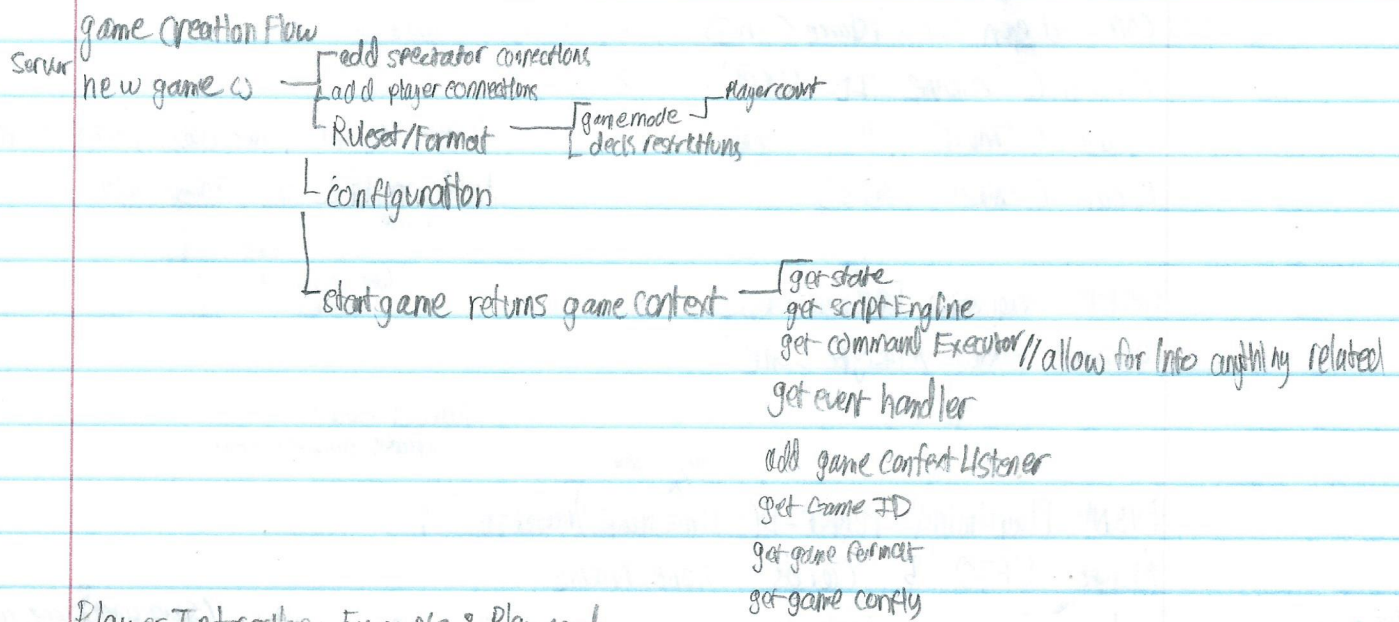 game creation Flow
Server
new game ()
add spectator connections
add player connections
Ruleset/Format
gamemode
Playercount
deck restrictions
configuration
start game returns game context
get state
get script Engine
get command Executor // allow for info anything related
get event handler
add game context Listener
get Game ID
get game format
get game config
Player Interaction Example: Play card